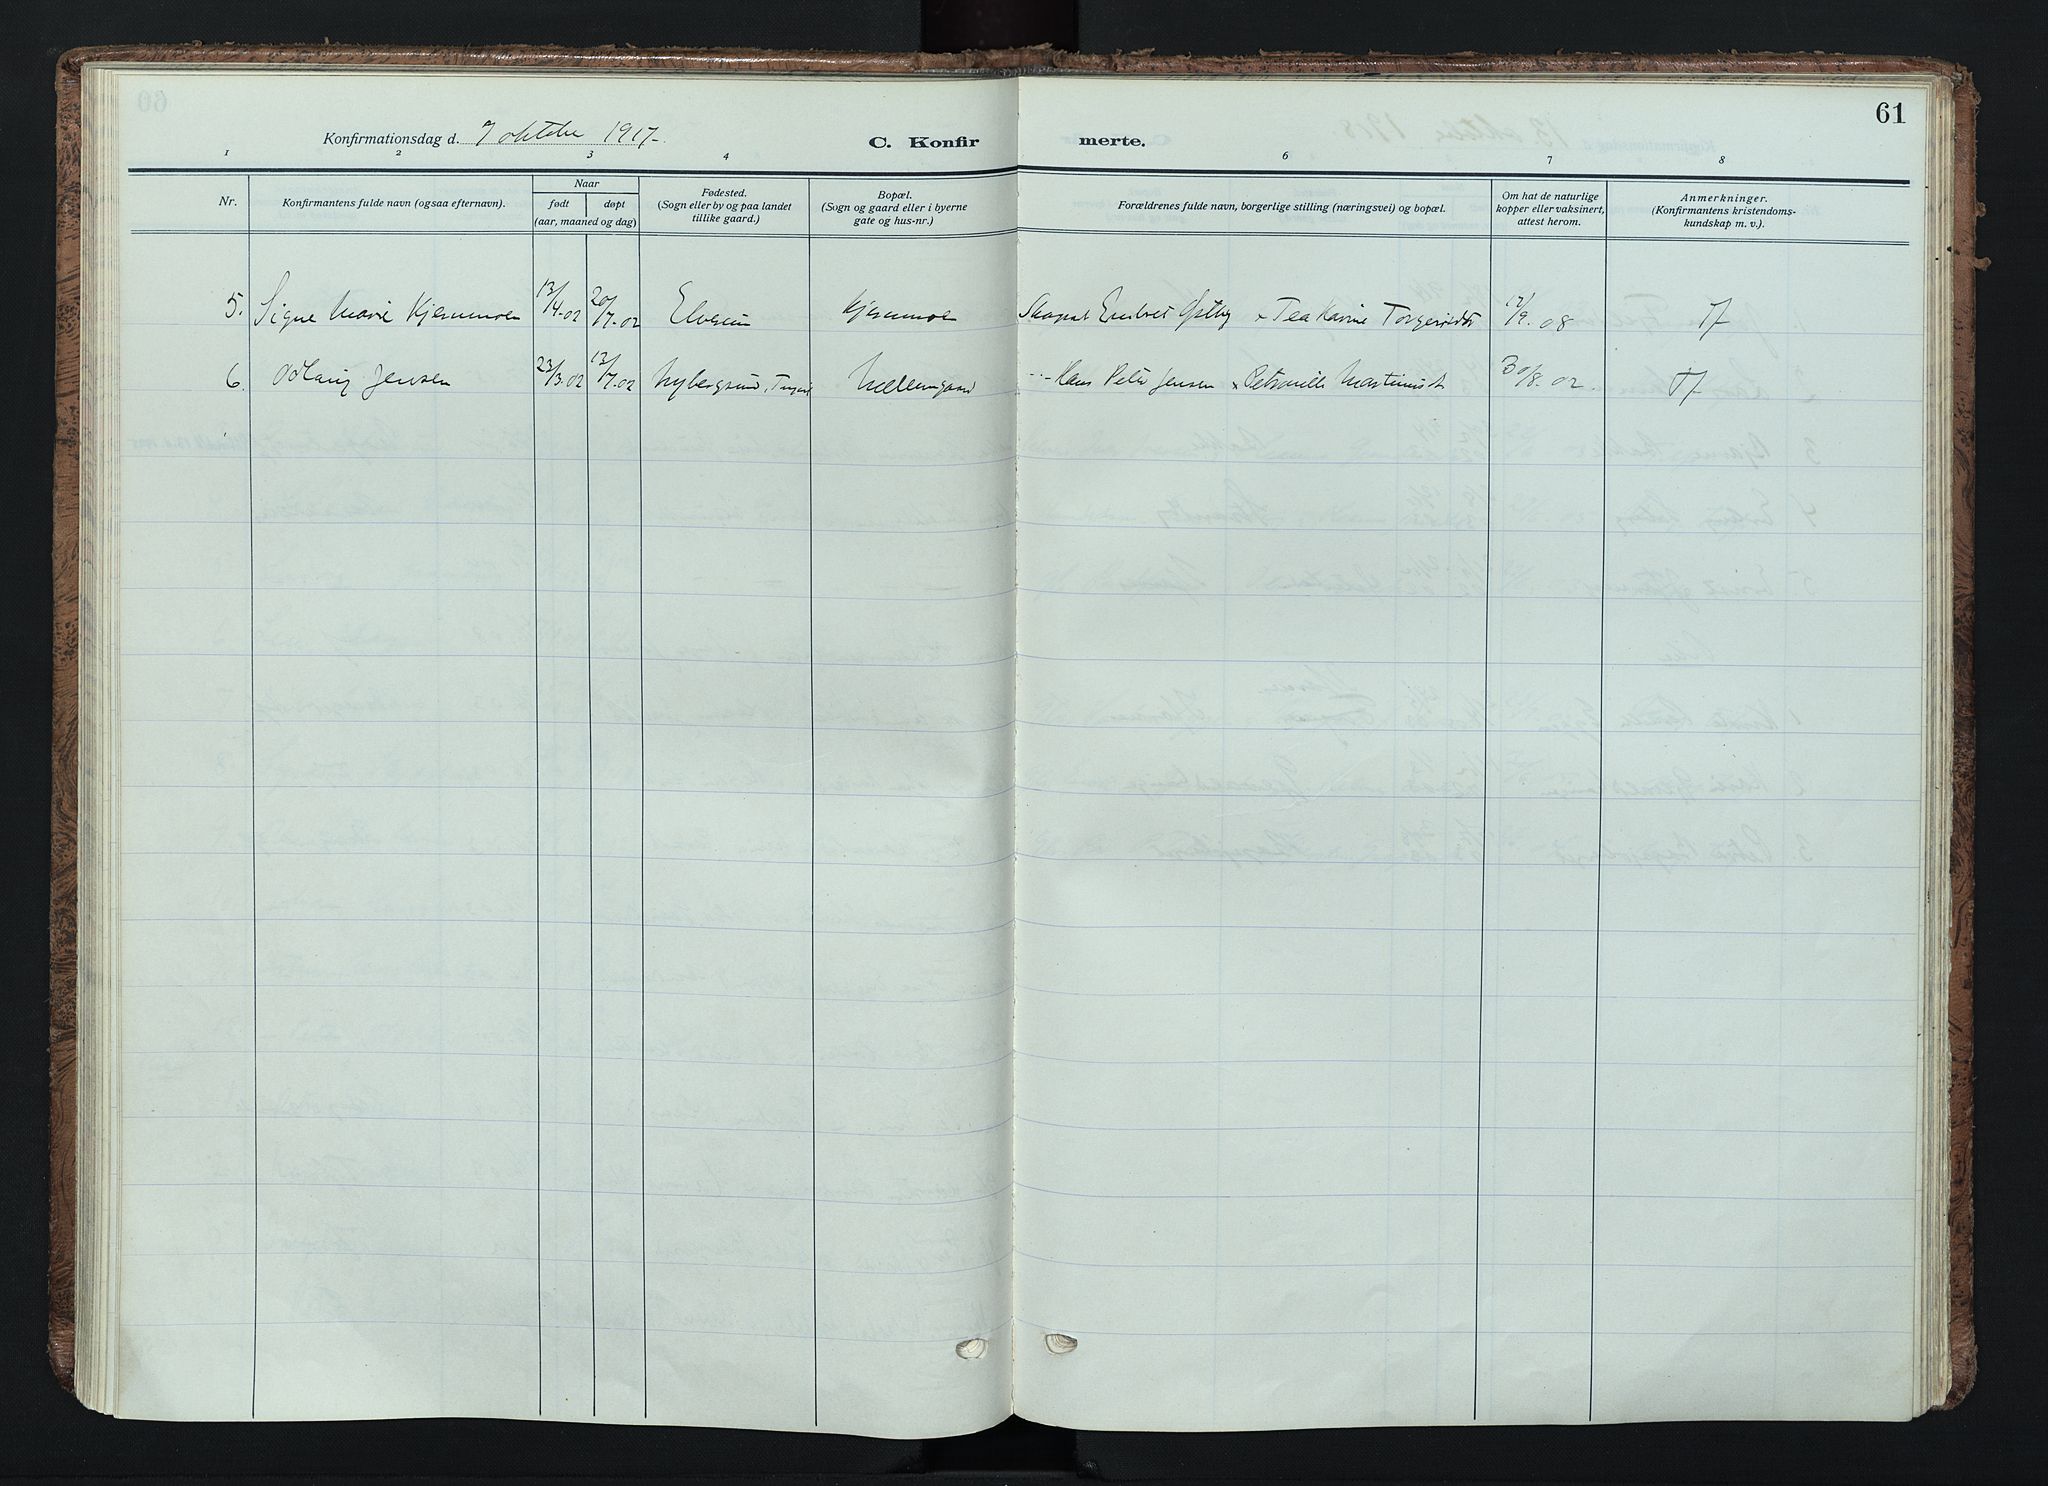 61
Konfirmationsdag d. 7 oktober 1917. C. Konfirmerte.
1 2 3 4 6 7 8
Nr. Konfirmantens fulde navn (ogsaa efternavn). Naar født døpt (aar, maaned og dag) Fødested. (Sogn eller by og paa landet tillike gaard.) Bopæl. (Sogn og gaard eller i byerne gate og hus-nr.) Forældrenes fulde navn, borgerlige stilling (næringsvei) og bopæl. Om hat de naturlige kopper eller vaksinert, attest herom. Anmerkninger. (Konfirmantens kristendoms-kundskap m. v.).
5. Signe Marie Kjernmoen 13/4-02 20/7-02 Elverum Kjernmoen Østby Tea Karine Torgersdtr 17/9.08 Tf
6. Oddlaug Jensen 23/3.02 13/7.02 Nybergsund, Hans Peter Jensen Martinusdt 30/8.02. Tf